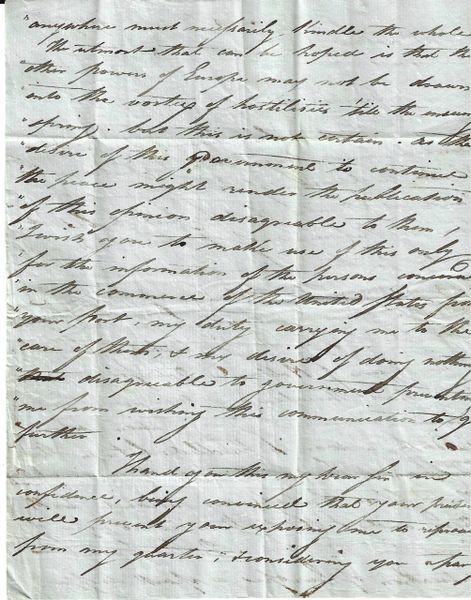 "anywhere must necessarily kindle the whole
"the utmost that can be hoped is that the
"other powers of Europe may not be drawn
"into the vortex of hostilities 'till the ensu
"spring. but this is not certain. as the
"desire of this Government to continue
"the peace might render the publication
"of this opinion disagreeable to them,
"I wish you to make use of this only
"for the information of the persons concerned
"in the commerce of the United States from
"your port, my duty carrying me to the
"care of them, & my desire of doing nothing
"disagreeable to government
"me from wishing this communication to g
"further.
I hand you this my Dear Sir in
confidence, being convinced that your
will prevent your exposing me to
from any quarter; & considering you a